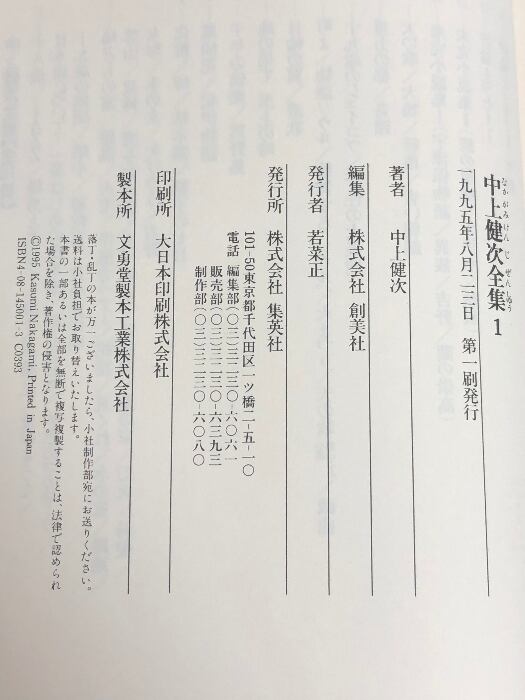 中上健次全集 1
なかがみけんじぜんしゅう
一九九五年八月二三日 第一刷発行
著者 中上健次
編集 株式会社 創美社
発行者 若菜正
発行所 株式会社 集英社
101-50東京都千代田区一ツ橋二-五-一〇
電話 編集部(〇三)三二三〇-六〇六一
販売部(〇三)三二三〇-六三九三
制作部(〇三)三二三〇-六〇八〇
印刷所 大日本印刷株式会社
製本所 文勇堂製本工業株式会社
落丁・乱丁の本が万一ございましたら、小社制作部宛にお送りください。
送料は小社負担でお取り替えいたします。
本書の一部あるいは全部を無断で複写複製することは、法律で認められ
た場合を除き、著作権の侵害となります。
©1995 Kasumi Nakagami, Printed in Japan
ISBN4-08-145001-3 C0393